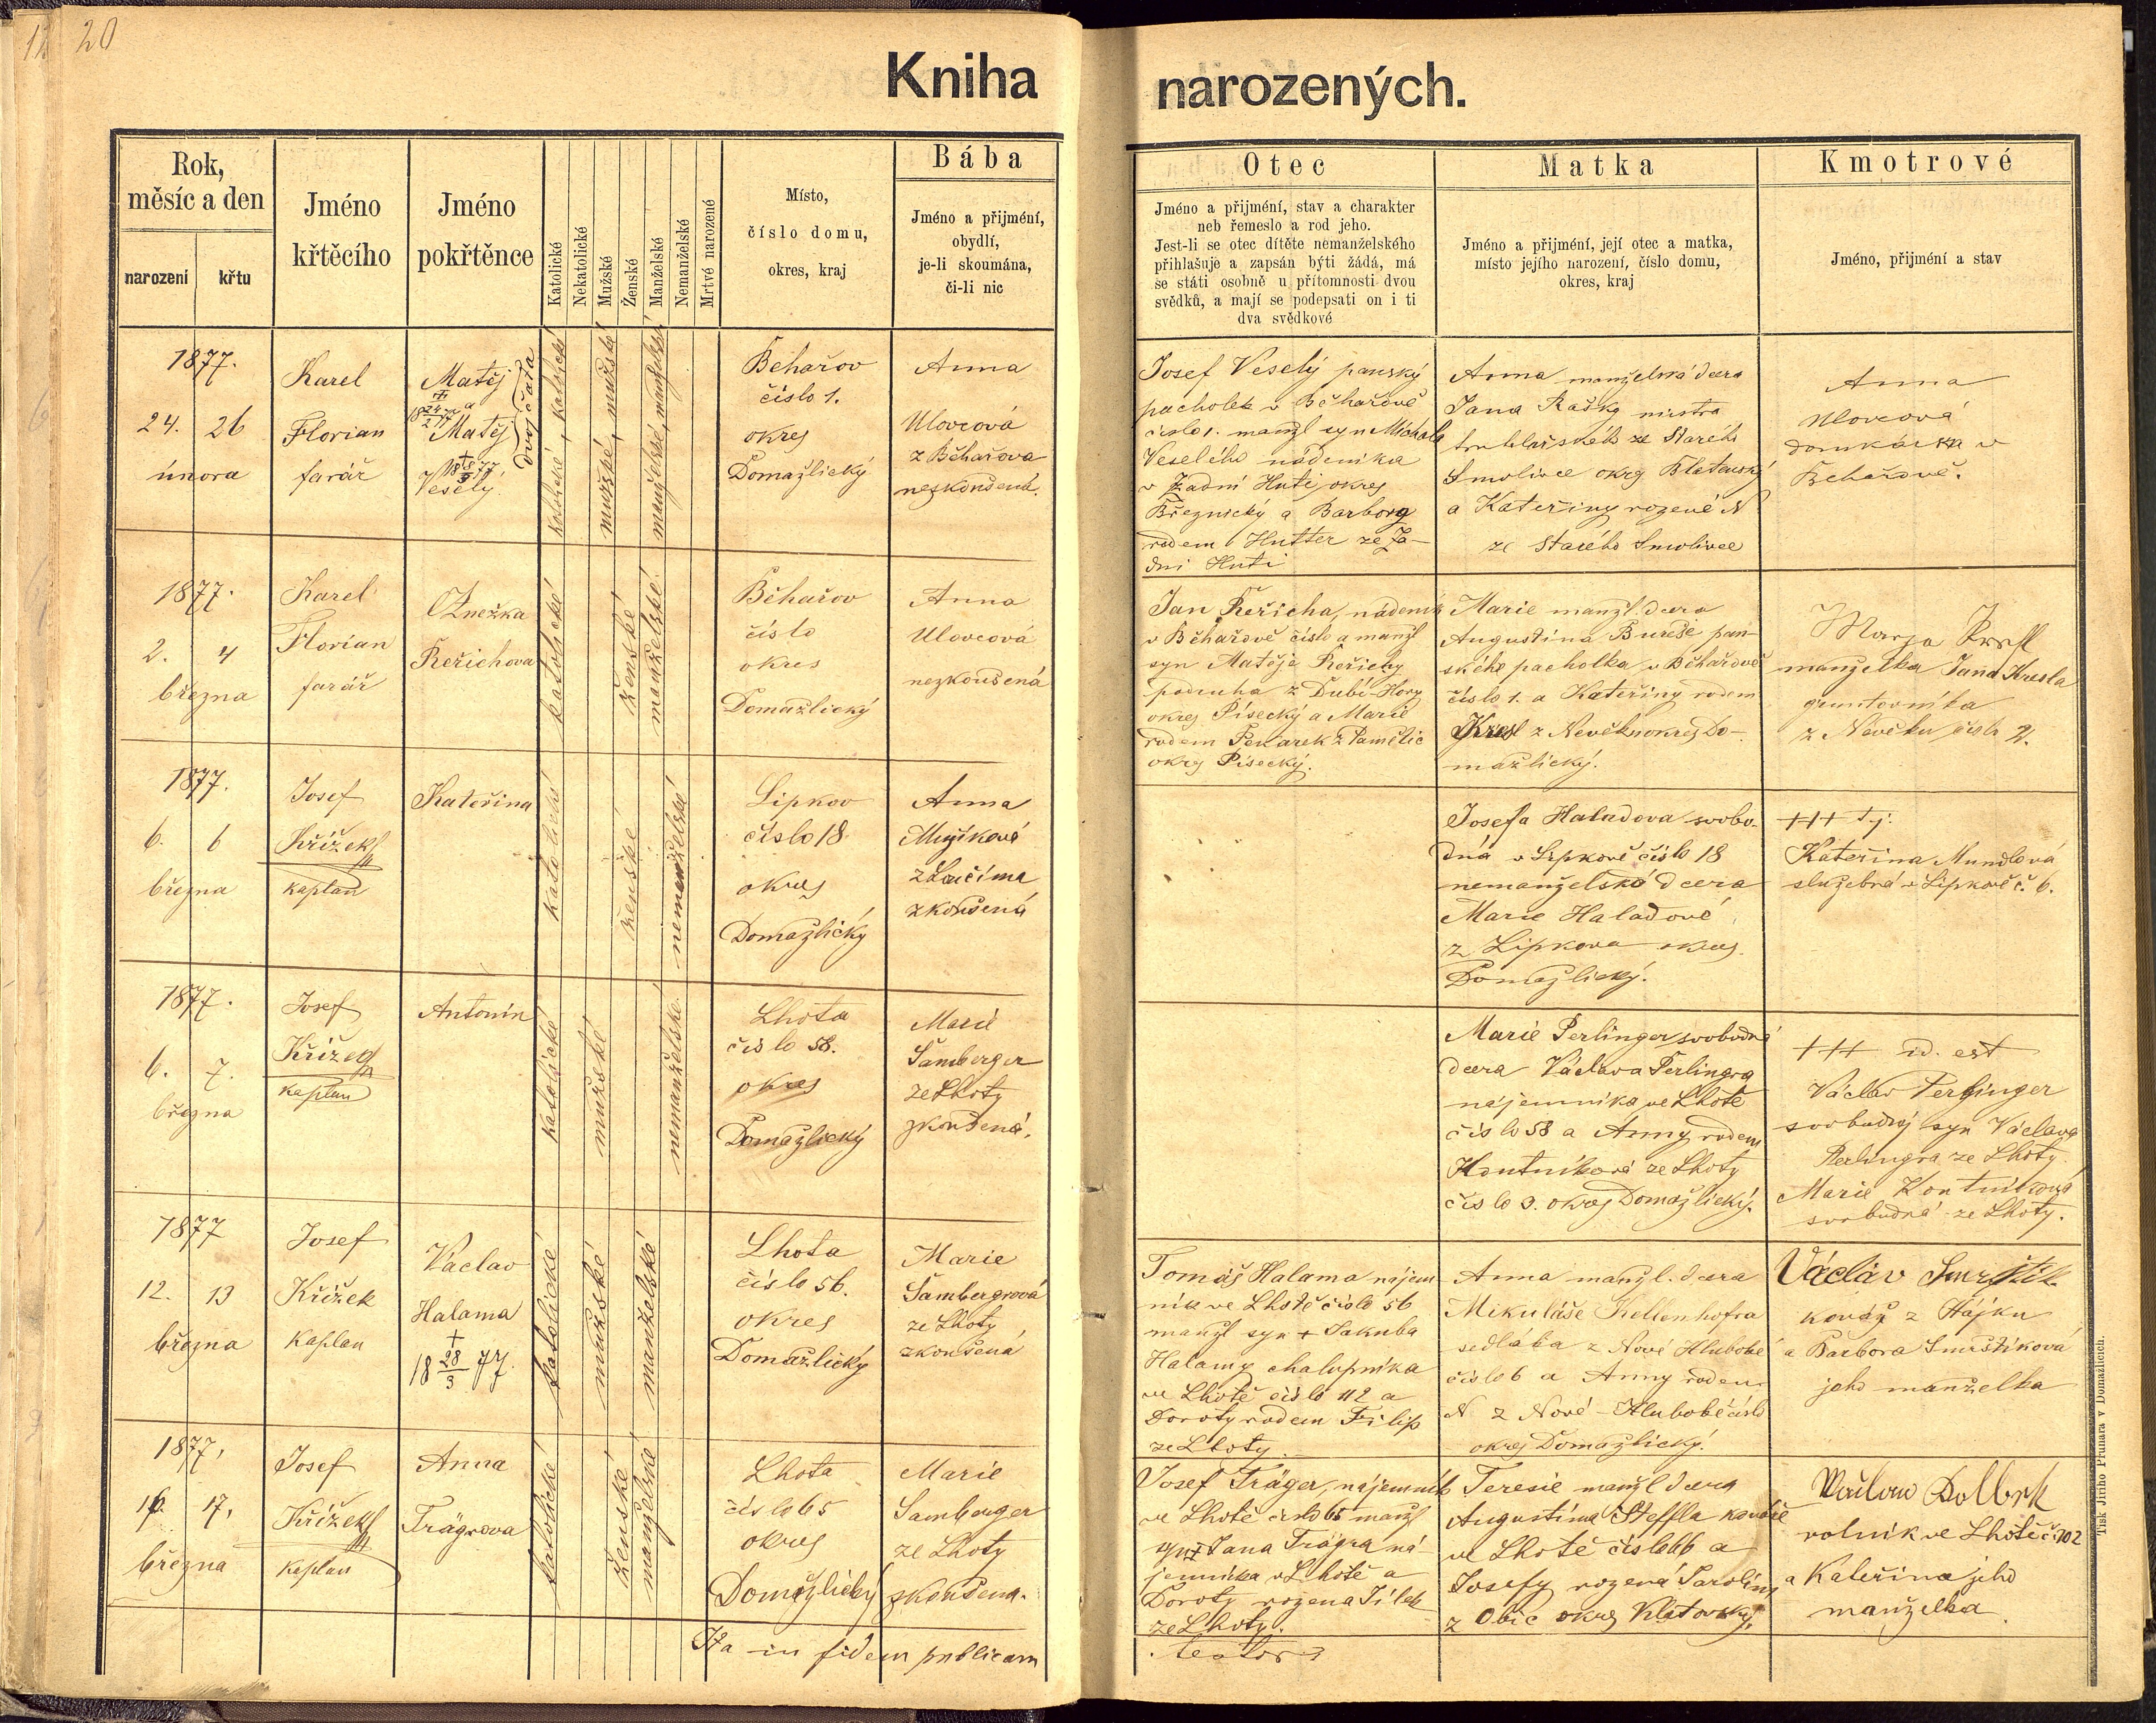 20
Kniha narozených.
Rok, měsíc a den
narození
křtu
Jméno křtěcího
Jméno pokřtěnce
Katolické
Nekatolické
Mužské
Ženské
Manželské
Nemanželské
Mrtvé narozené
Místo,
číslo domu,
okres, kraj
Bába
Jméno a přijmení,
obydlí,
je-li skoumána,
či-li nic
Otec
Jméno a přijmení, stav a charakter
neb řemeslo a rod jeho.
Jest-li se otec dítěte nemanželského
přihlašuje a zapsán býti žádá, má
se státi osobně u přítomnosti dvou
svědků, a mají se podepsati on i ti
dva svědkové
Matka
Jméno a přijmení, její otec a matka,
místo jejího narození, číslo domu,
okres, kraj
Kmotrové
Jméno, přijmení a stav
1877.
24. 26
února
Karel
Florian
farář
Matěj
a
Matěj
Veselý
dvojčata
katolické, katolické
mužské, mužské
manželské, manželské
Běhařov
číslo 1.
okres
Domažlický
Anna
Ulovcová
z Běhařova
nezkoušená.
Josef Veselý panský
pacholek v Běhařově
číslo 1. manžl syn Michala
Veselého nádeníka
v Zadní Huti, okres
Březnický a Barbory
rodem Hutter ze Za-
dní Huti
Anna manželská dcera
Jana Rašky mistra
truhlařského ze Starého
Smolivce okrg Blatenský
a Kateřiny rozené N
ze Starého Smolivce
Anna
Ulovcová
domkářka v
Běhařově.
1877.
2. 4
března
Karel
Florian
farář
Anežka
Řeřichova
katolické
ženské
manželské
Běhařov
číslo
okres
Domažlický
Anna
Ulovcová
nezkoušená
Jan Řeřicha, nádeník
v Běhařově číslo a manžl
syn Matěje Řeřichy
podruha z Dubí-Hory
okres Písecký a Marie
rodem Pekarek z Pamětic
okrg Písecký.
Marie manžl. dcera
Augustina Bureše pan-
ského pacholka v Běhařově
číslo 1. a Kateřiny rodem
Kresl z Nevěkn okres Do-
mažlický.
manželka Jana Kresla
gruntovníka
1877.
6. 6
března
Josef
Křížek
kaplan
Kateřina
katolické
ženské
nemanželské
Lipkov
číslo 18.
okres
Domažlický
Anna
Mužíková
z Loučima
zkoušená
Josefa Haladova svobo-
dná v Lipkově číslo 18
nemanželská dcera
Marie Haladové
z Lipkova okres.
Domažlický.
+++ t.j.
Kateřina Mundlová
služebná v Lipkově č. 6.
1877.
6. 7.
března
Josef
Křížek
kaplan
Antonín
katolické
mužské
nemanželské.
Lhota
číslo 58.
okres
Domažlický
Marie
Šamberger
ze Lhoty
zkoušená.
Marie Perlinger svobodná
dcera Václava Perlingra
nájemníka ve Lhotě
číslo 58 a Anny rodem
Kontníková ze Lhoty
číslo 3. okres Domažlický.
+++ id. est
Václav Perlinger
svobodný syn Václava
Perlingra ze Lhoty
Marie Kontníková
svobodná ze Lhoty.
1877
12. 13
března
Josef
Křížek
kaplan
Václav
Halama
+
18 28/3 77.
katolické
mužské
manželské
Lhota
číslo 56.
okres
Domažlický
Marie
Šambergrová
ze Lhoty
zkoušená
Tomáš Halama nájem-
ník ve Lhotě číslo 56
manžl syn + Jakuba
Halamy chalupníka
ve Lhotě číslo 42 a
Doroty rodem Filip
ze Lhoty.
Anna manžl. dcera
Mikuláše Kellenhofra
sedláka z Nové Hluboké
číslo 6 a Anny rodem
N z Nové-Hluboké číslo
okres Domažlický.
Václav Smrštik
kovář z Hájku
a Barbora Smrštíková
jeho manželka
1877.
16. 17.
března
Josef
Křížek
kaplan
Anna
Trägrova
katolické
ženské
manželské
Lhota
číslo 65
okres
Domažlický
Marie
Samberger
ze Lhoty
zkoušena.
Josef Träger, nájemník
ve Lhotě číslo 65 manžl
syn + Jana Trägra ná-
jemníka v Lhotě a
Doroty rozena Jílek
ze Lhoty.
Teresie manžl dcera
Augustina Steffla kováře
ve Lhotě číslo 66 a
Josefy rozená
z Obic okres Klatovský.
rolník ve Lhotě č. 102
a Kateřina jeho
manželka.
Ita in fidem publicam
testor
Tisk Jiřího Prunara v Domažlicích.